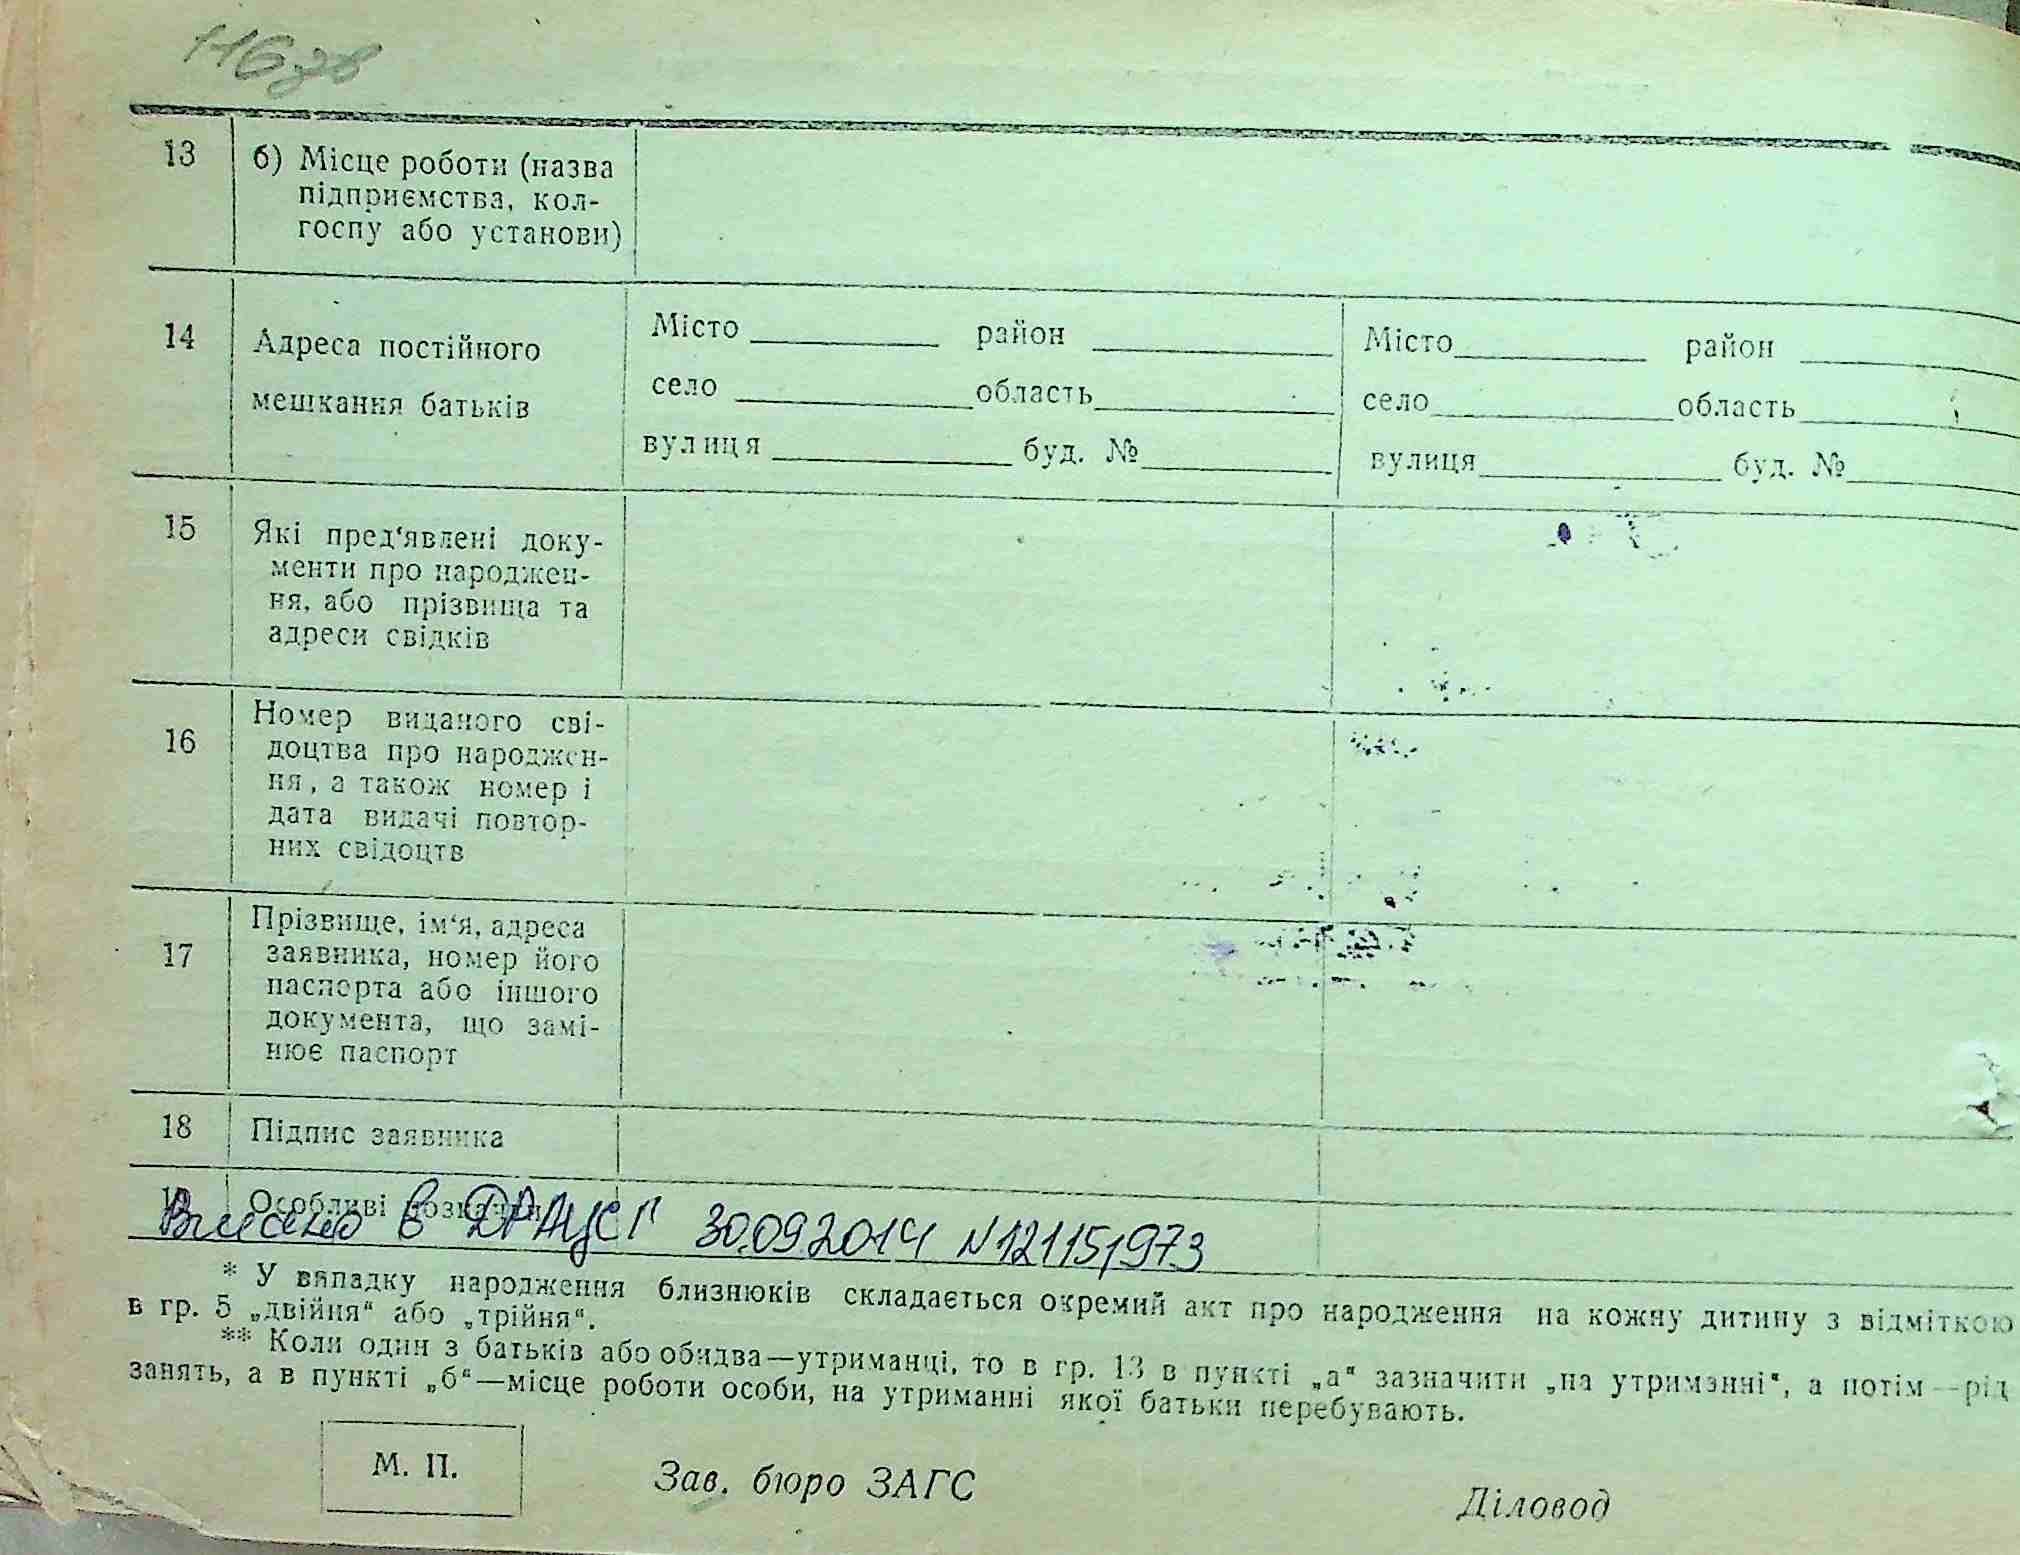 116 зв
13
б) Місце роботи (назва
підприємства, кол-
госпу або установи)
14
Адреса постійного
мешкання батьків
Місто район
село область
вулиця буд. №
Місто район
село область
вулиця буд. №
15
Які пред‘явлені доку-
менти про народжен-
ня, або прізвища та
адреси свідків
16
Номер виданого сві-
доцтва про народжен-
ня, а також номер і
дата видачі повтор-
них свідоцтв
17
Прізвище, ім‘я, адреса
заявника, номер його
паспорта або іншого
документа, що замі-
нює паспорт
18
Підпис заявника
19
Особливі позначки
Внесено в ДРАЦСГ 30.09.2014 N12115973
* У випадку народження близнюків складається окремий акт про народження на кожну дитину з відміткою
в гр. 5 „двійня“ або „трійня“.
** Коли один з батьків або обидва—утриманці, то в гр. 13 в пункті „а“ зазначити „на утриманні“, а потім—рід
занять, а в пункті „б“—місце роботи особи, на утриманні якої батьки перебувають.
М. П.
Зав. бюро ЗАГС
Діловод